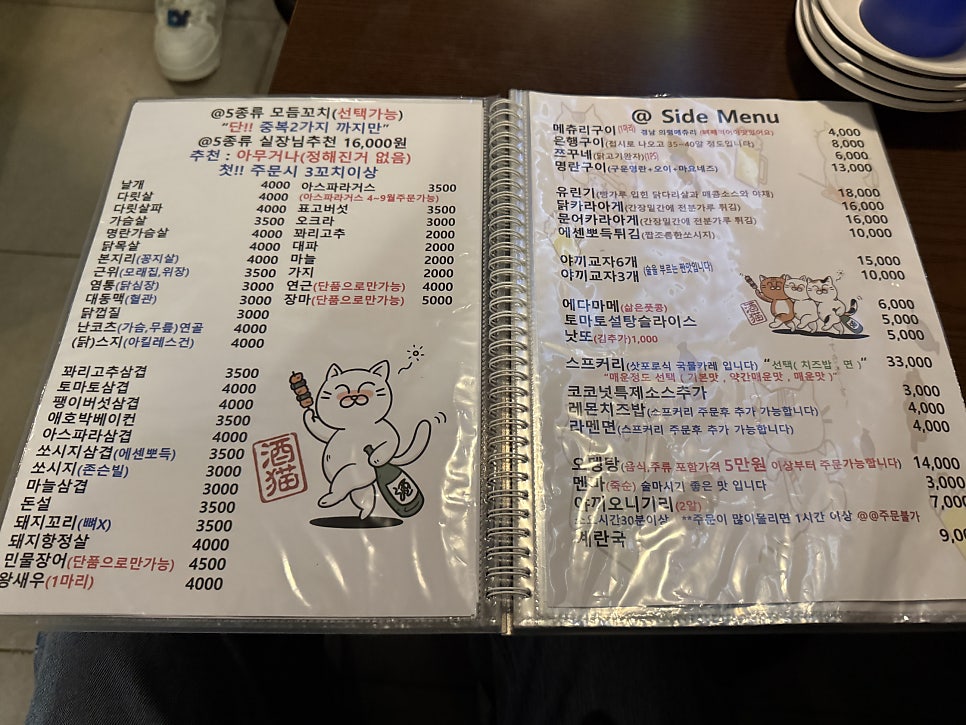 @5종류 모듬꼬치(선택가능)
“단!! 중복2가지 까지만”
@5종류 실장님추천 16,000원
추천 : 아무거나(정해진거 없음)
첫!! 주문시 3꼬치이상
날개 4000
다릿살 4000
다릿살파 4000
가슴살 3500
명란가슴살 4000
닭목살 4000
본지리(꽁지살) 4000
근위(모래집,위장) 3500
염통(닭심장) 3000
대동맥(혈관) 3000
닭껍질 3000
난코츠(가슴,무릎)연골 4000
(닭)스지(아킬레스건) 4000
아스파라거스 3500
(아스파라거스 4~9월주문가능)
표고버섯 3500
오크라 3000
꽈리고추 2000
대파 2000
마늘 2000
가지 2000
연근(단품으로만가능) 4000
장마(단품으로만가능) 5000
꽈리고추삼겹 3500
토마토삼겹 4000
팽이버섯삼겹 4000
애호박베이컨 3500
아스파라삼겹 4000
쏘시지삼겹(에센뽀득) 3500
쏘시지(존슨빌) 3000
마늘삼겹 3000
돈설 3500
돼지꼬리(뼈X) 3500
돼지항정살 4000
민물장어(단품으로만가능) 4500
왕새우(1마리) 4000
酒猫
酒
@ Side Menu
메츄리구이(1마리) 경남 의령메츄리 4,000
은행구이(접시로 나오고 35~40알 정도입니다) 8,000
쯔꾸네(닭고기완자)(1PS) 6,000
명란구이(구운명란+오이+마요네즈) 13,000
유린기(빵가루 입힌 닭다리살과 매콤소스와 야채) 18,000
닭카라아게(간장밑간에 전분가루 튀김) 16,000
문어카라아게(간장밑간에 전분가루 튀김) 16,000
에센뽀득튀김(짭조름한쏘시지) 9,000
야끼교자6개 15,000
(술을 부르는 찐맛입니다)
야끼교자3개 10,000
에다마메(삶은풋콩) 6,000
토마토설탕슬라이스 5,000
낫또(김추가)1,000 5,000
酒猫
스프커리(삿포로식 국물카레 입니다) “선택( 치즈밥 , 면 )” 33,000
“매운정도 선택 ( 기본맛 , 약간매운맛 , 매운맛 )”
코코넛특제소스추가 3,000
레몬치즈밥(스프커리 주문후 추가 가능합니다) 4,000
라멘면(스프커리 주문후 추가 가능합니다) 4,000
오뎅탕(음식,주류 포함가격 5만원 이상부터 주문가능합니다) 14,000
멘마(죽순) 술마시기 좋은 맛 입니다 3,000
야끼오니기리(2알) 7,000
소요시간30분이상 **주문이 많이몰리면 1시간 이상 @@주문불가
계란국